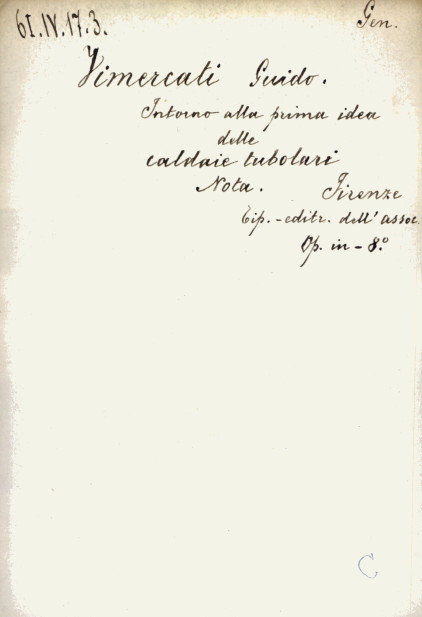 61.IV.17.3.
Gen.
Vimercati Guido.
Intorno alla prima idea
delle
caldaie tubolari
Nota. Firenze
Tip.-editr. dell'assoc.
Op. in-8.º
C